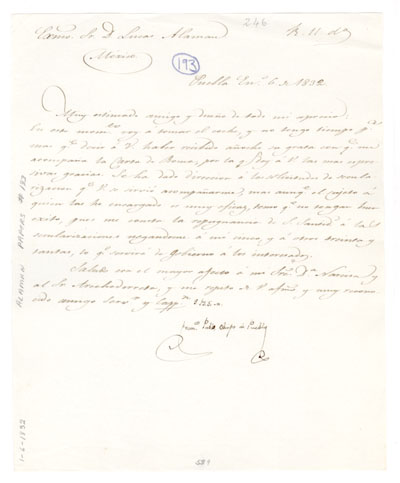 246
Exmo. Sr. D. Lucas Alaman
R. 11 do
Mexico
193
Puebla En.o 6 de 1832
Muy estimado amigo y dueño de todo mi aprecio.
En este mom.to voy a tomar el coche, y no tengo tiempo p.a
mas q.e decir á V. haber recibido anoche su grata con q.e me
acompaña la Carta de Roma, por la q.e doy á V. las mas expre-
sivas gracias. Se ha dado direccion á las solicitudes de secula-
rizacion q.e V. se sirvió acompañarme; mas aunq.e el sujeto á
quien las he encargado es muy eficaz, temo q.e no tengan buen
exito, pues me consta la repugnancia de S. Santid.d á las
secularizaciones negandome á mi nueve y á otros treinta y
tantas, lo q.e servirá de gobierno á los interesados.
Saludo con el mayor afecto á mi Sra. D.a Narcisa y
al Sr. y me repito de V. afmo. y muy recono-
cido amigo serv.or y Capp.n Q.B.S.M.
Fran.co Pablo Obispo de Puebla
ALAMAN PAPERS # 193
1-6-1832
589